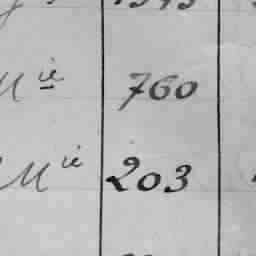 M ie 760
M ie 203